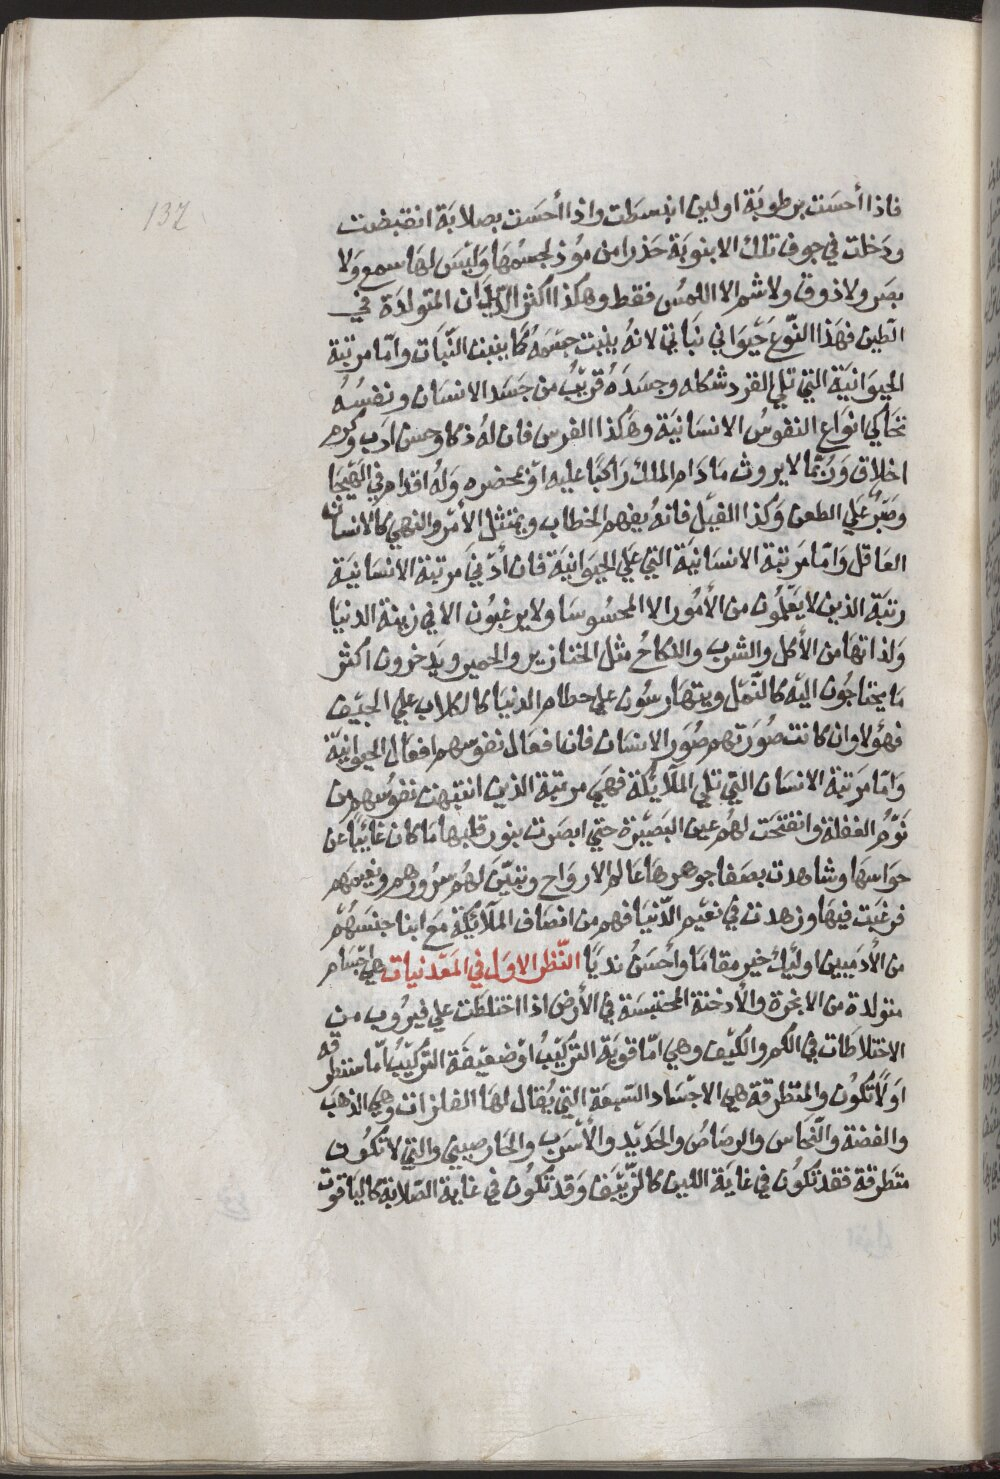 137
فاذا أحسَت برطوبَة اولين انبسطت واذا أحسَت بصلابَة انقبضت
ودَخلت في جوف تلك الانبوبَة حَذرا من مؤذ لجسْمهَا وَليْسَ لهَا سمع وَلا
بصَر ولا ذوق ولا شم الا اللمسْ فقط وهكذا اكثر الدّيدَان المتولدَة في
الطين فهَذا النّوع حَيْوَاني نبَاتي لانهُ ينبت جسْمهُ كمَا ينبت النّبَات وامّا مرتبة
الحيوَانيَة التي تلي القرد شكله وجسَدَهُ قريْبٌ من جَسَد الانسَان ونفسُهُ
تحَاكي انوَاع النفوسُ الانسَانيَة وهَكذا الفرس فان لهُ ذكا وحسن ادَب وكرم
اخلاق وَربّما لا يروث مَا دَام الملك رَاكبًا عليه اوْ بحضره وَلهُ اقدام في الهَيْجَا
وصَبْر عَلي الطعن وَكذا الفيْل فانهُ يفهم الخطاب ويمتثل الأمْر والنهي كالانسان
العَاقل وَامّا مرَتبَة الانسَانيَة التي علي الحيوَانيَة فان أدْنيَ مرتبة الانسَانيَة
رتبَة الذين لا يَعْلمُون من الأمُور الا المحسُوسَا ولا يرغبُون الا في زينة الدنيَا
وَلذاتهَا من الأكل والشرْب والنكاحُ مثل الخنازير والحمير ويَدخرون اكثر
مَا يحتاجُون اليْه كالنّمْل ويتهَارسُون علي حطام الدنيَا كالكلاب علي الجيْف
فهؤلا وان كانت صُورَتهم صُوَر الانسَان فان افعَال نفوسهم افعَال الحيوانيّة
وَامّا مرَتبَة الانسَان التي تلي الملائِكة فهيَ مرتبَة الذين انتبَهت نفوسُهم من
نَوْمُ الغفلة وانفتحَت لهُم عين البَصيْرة حتي ابصَرت بنور قلبهَا مَا كان غايبًا عن
حوَاسهَا وشاهدت بصَفا جوهرهَا عَالم الارواح وتبيّن لهُم سرُورهم ونعيمَهم
فرغبَت فيهَا وزهدت في نعَيْم الدّنيَا فهم من انصاف الملآئِكة مَع ابنا جنسَهُمْ
من الأدَميين اوليِك خير مقامَا وأحسَنُ نديًا النّظر الاوَل في المعَدنيات هي اجْسَام
متولدة من الابخرة والأدخنة المحتبسَة في الأرض اذا اختلطَت علي ضرُوب من
الاختلاطَات في الكم والكيْف وهي امّا قويَة التركيْبُ اوْ ضعيْفة التركيْبُ امّا متطرقه
اوَلا تكوُن والمتطرقة هي الاجْسَاد السّبعَة التي يُقال لهَا الفلزات وهي الذهَب
والفضة والنّحَاس والرصَاص والحدَيْد والأسْرَب والخارصيني والتي لا تكوُن
متطَرقة فقد تكوُن في غايَة اللين كالزّيبَق وَقد تكوُن في غاية الصّلابَة كاليَاقوت